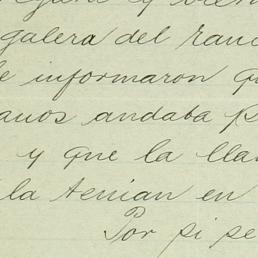 galera del ranc
informaron qu
anos andaba p
y que la lla
la tenian en
Por si se